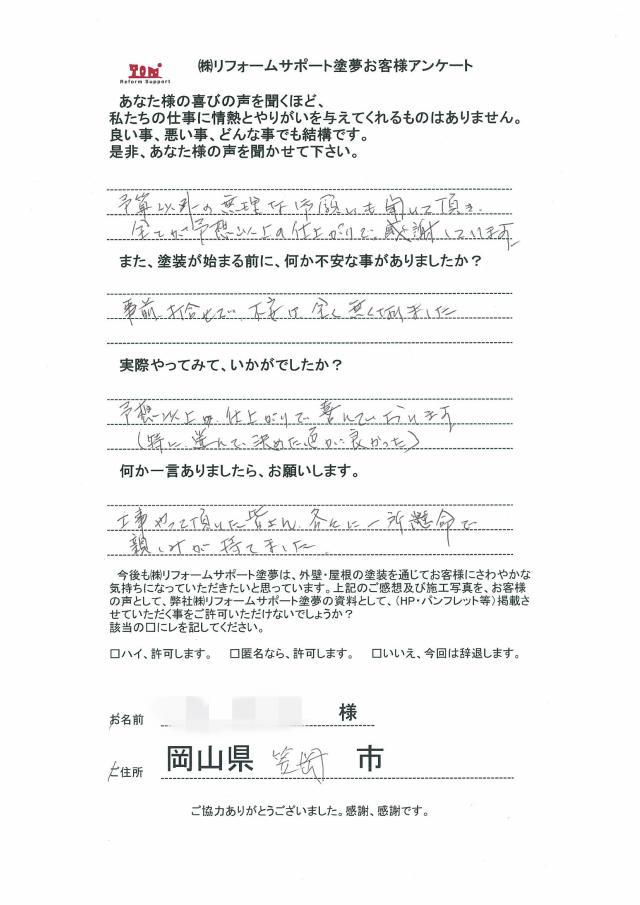 TOM
Reform Support
㈱リフォームサポート塗夢お客様アンケート
あなた様の喜びの声を聞くほど、
私たちの仕事に情熱とやりがいを与えてくれるものはありません。
良い事、悪い事、どんな事でも結構です。
是非、あなた様の声を聞かせて下さい。
予算以外の無理なお願いも聞いて頂き、
全てが予想以上の仕上がりで、感謝しています
また、塗装が始まる前に、何か不安な事がありましたか？
事前打合せで、不安は全く無くなりました
実際やってみて、いかがでしたか？
予想以上の仕上がりで喜んでおります
(特に選んで決めた色が良かった)
何か一言ありましたら、お願いします。
工事やって頂いた皆さん、各々に一所懸命で
親しみが持てました。
今後も㈱リフォームサポート塗夢は、外壁・屋根の塗装を通じてお客様にさわやかな
気持ちになっていただきたいと思っています。上記のご感想及び施工写真を、お客様
の声として、弊社㈱リフォームサポート塗夢の資料として、（HP・パンフレット等）掲載さ
せていただく事をご許可いただけないでしょうか？
該当の□にレを記してください。
□ハイ、許可します。 □匿名なら、許可します。 □いいえ、今回は辞退します。
お名前 様
ご住所 岡山県 笠岡 市
ご協力ありがとうございました。感謝、感謝です。